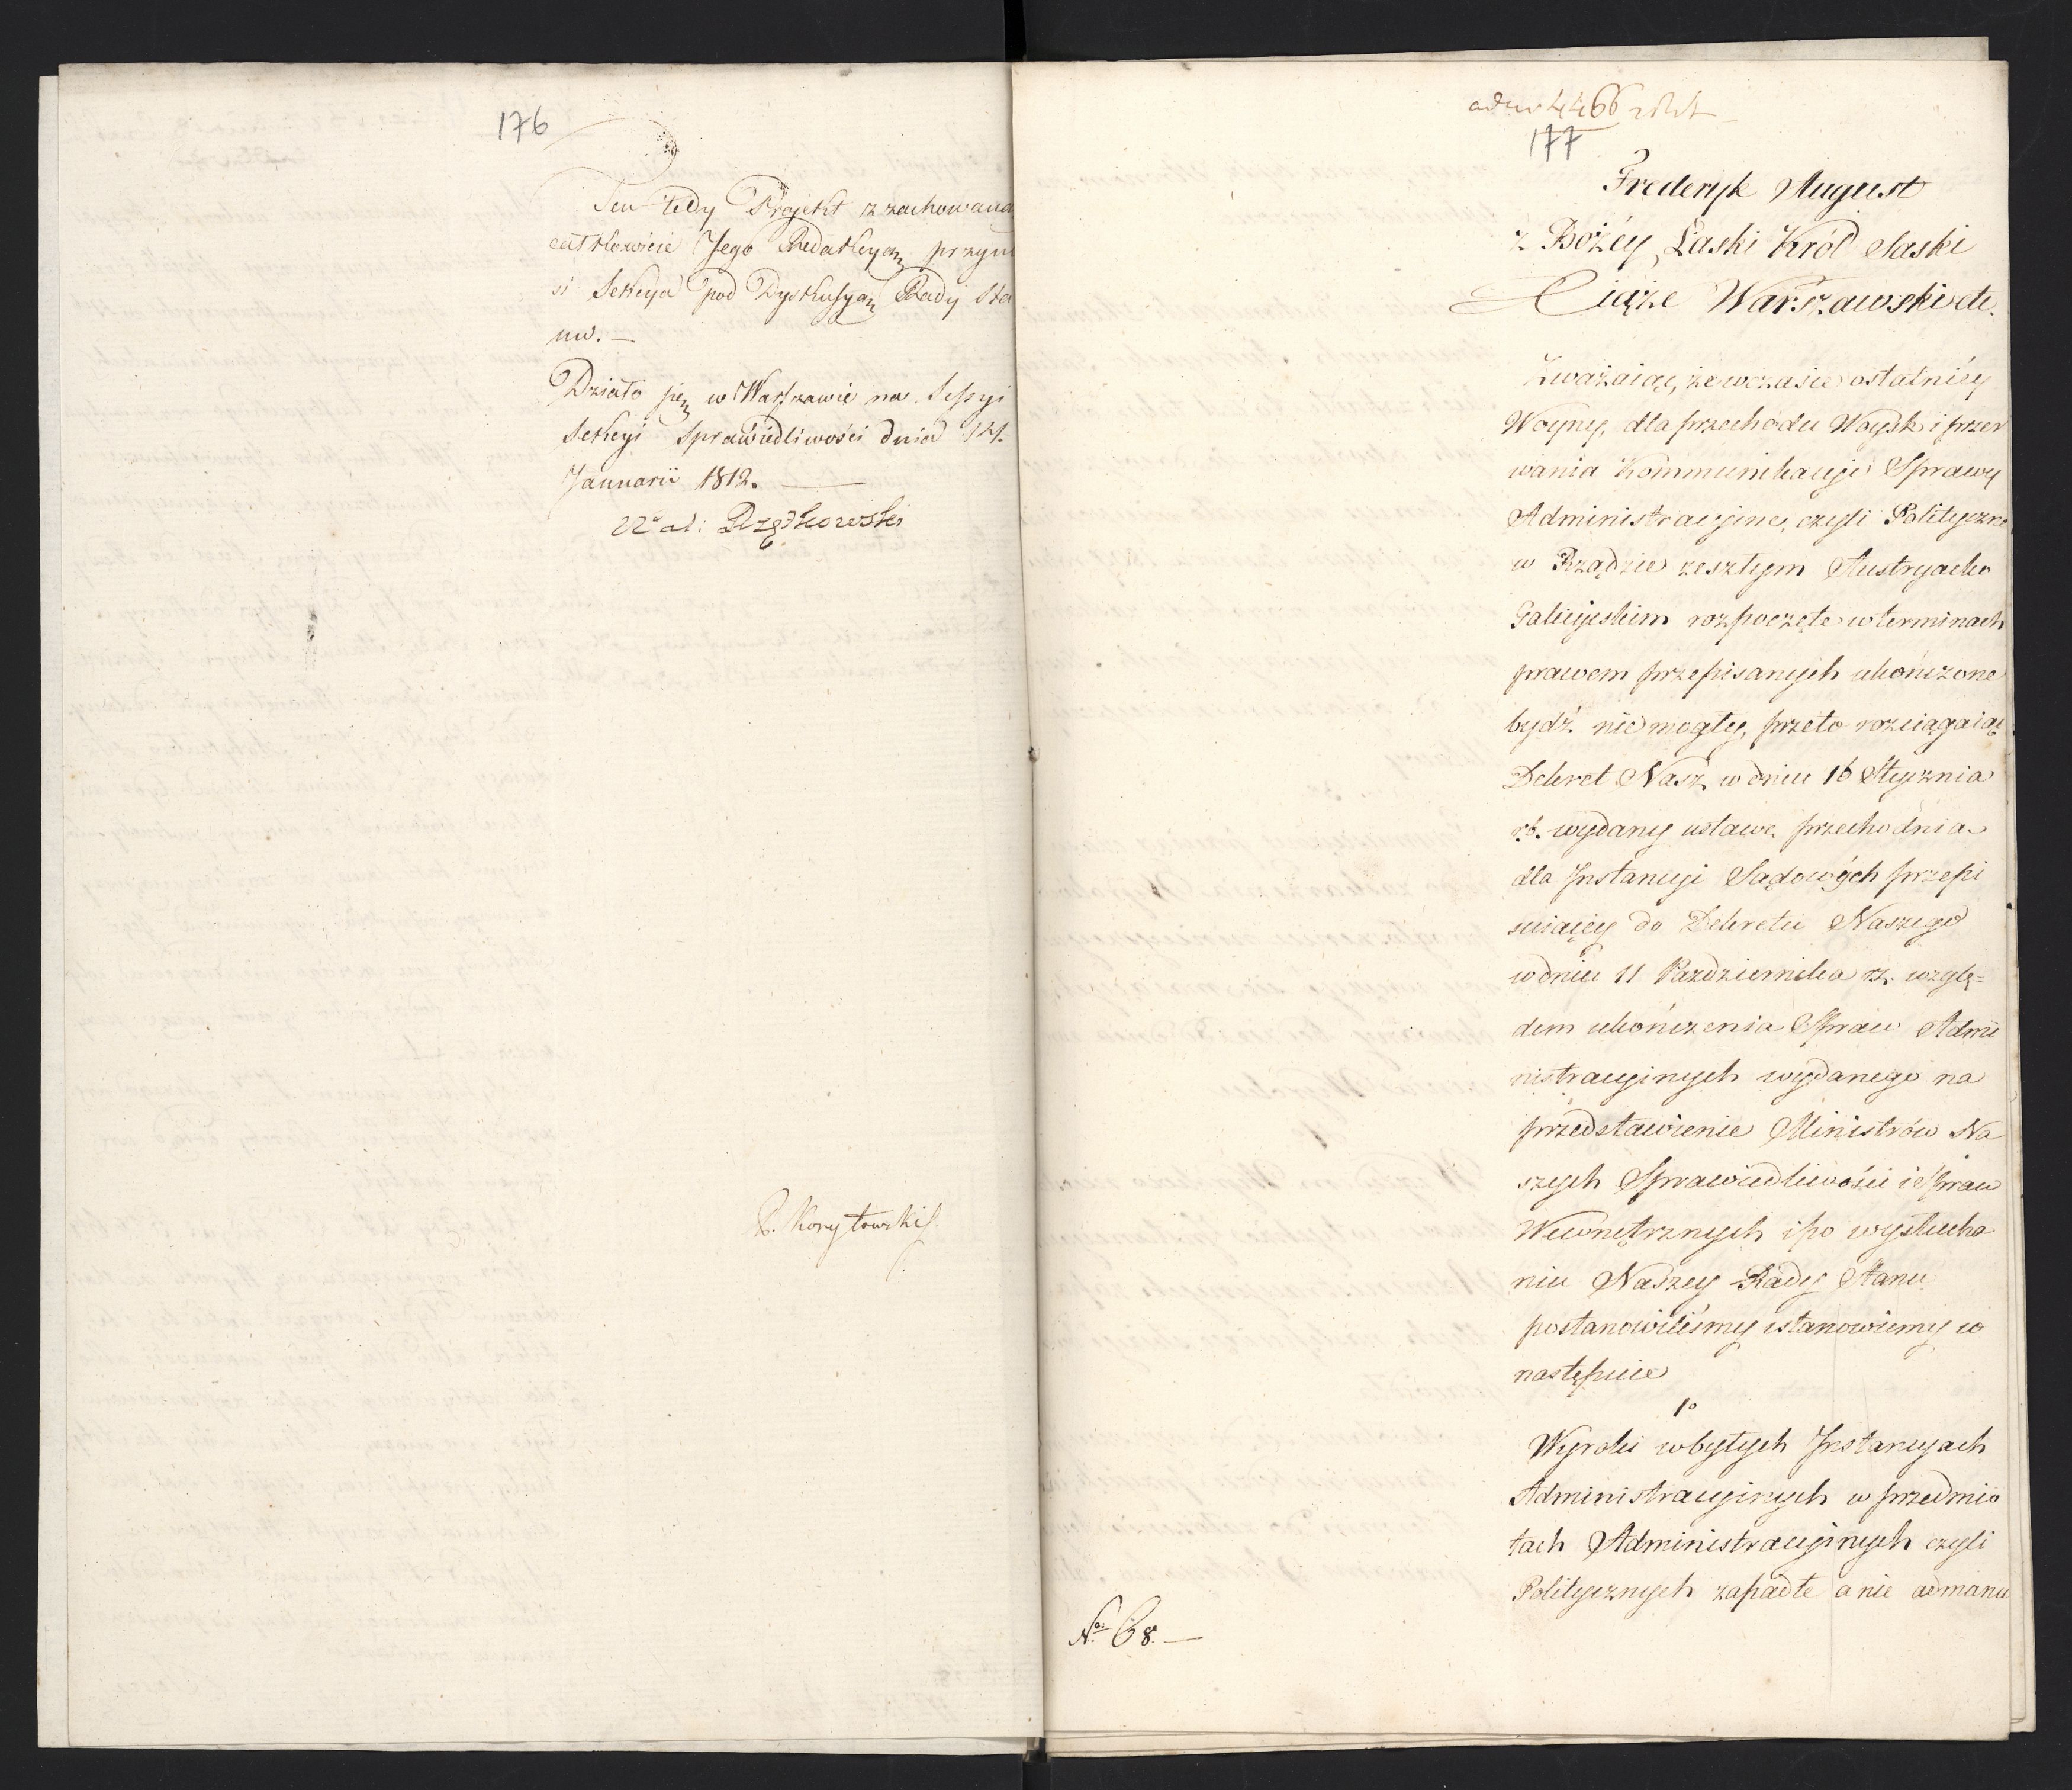 176
Ten tedy Projekt z zachowaną
całkowicie Jego Redakcyą przyno
si Sekcya pod Dyskusyą Rady Sta
nu. —
Działo się w Warszawie na Sessyi
Sekcyi Sprawiedliwości dnia 14.
Januarii 1812. —
Wal: Rzędkowski
P. Korytowski
177
Fryderyk August
z Bożéy Łaski Król Saski
Xiąże Warszawski etc.
Zważaiąc, że w czasie ostatniéy
Woyny, dla przechodu Woysk i przer
wania Kommunikacyi Sprawy
Administracyjne, czyli Polityczne
w Rządzie zeszłym Austryacko
Galicyjskim rozpoczęte w terminach
prawem przepisanych ukończone
bydź nie mogły, przeto rozciągaiąc
Dekret Nasz w dniu 16 Stycznia
r.b. wydany ustawę przechodnią
dla Instancyi Sądowych przepi
suiący do Dekretu Naszego
w dniu 11 Października r.z. wzglę-
dem ukończenia Spraw Admi
nistracyinych wydanego na
przedstawienie Ministrów Na
szych Sprawiedliwości i Spraw
Wewnętrznych i po wysłucha
niu Naszey Rady Stanu
postanowiliśmy i stanowiemy co
następuie
1º
Wyroki w byłych Instancyach
Administracyinych w przedmio
tach Administracyinych czyli
Politycznych zapadłe a nie
№ 68. —